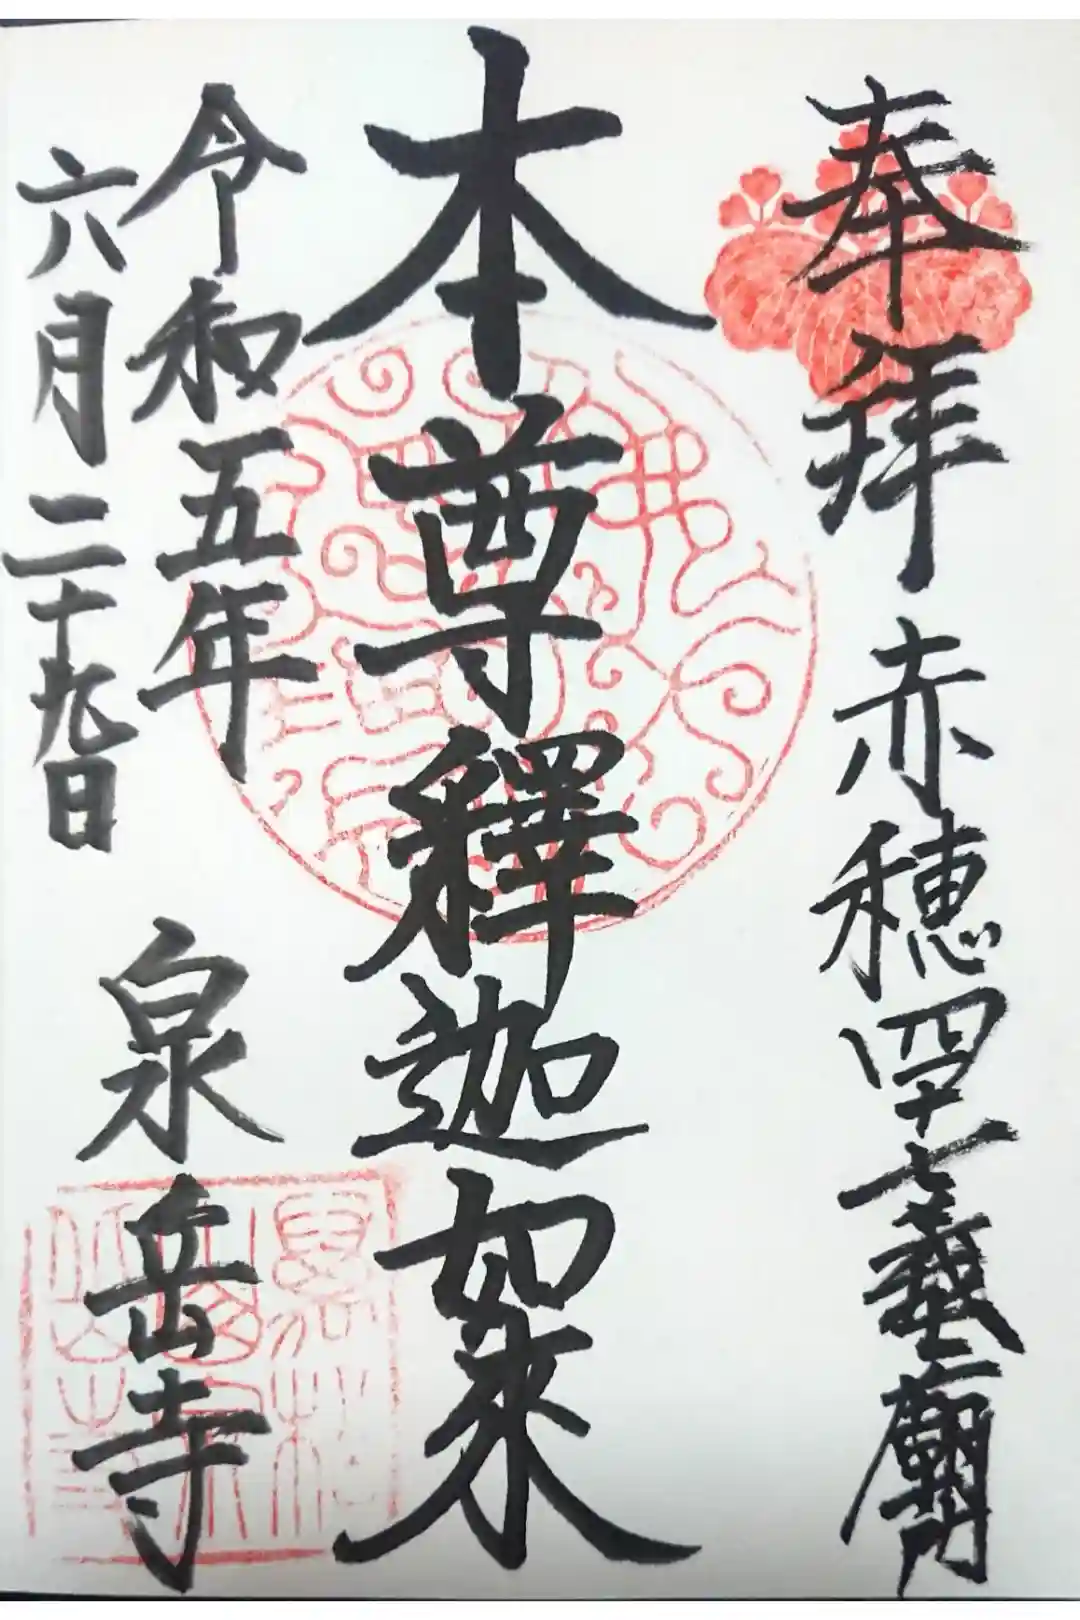 奉拝 赤穂四十七義士廟
本尊釋迦如來
令和五年
六月二十九日
泉岳寺